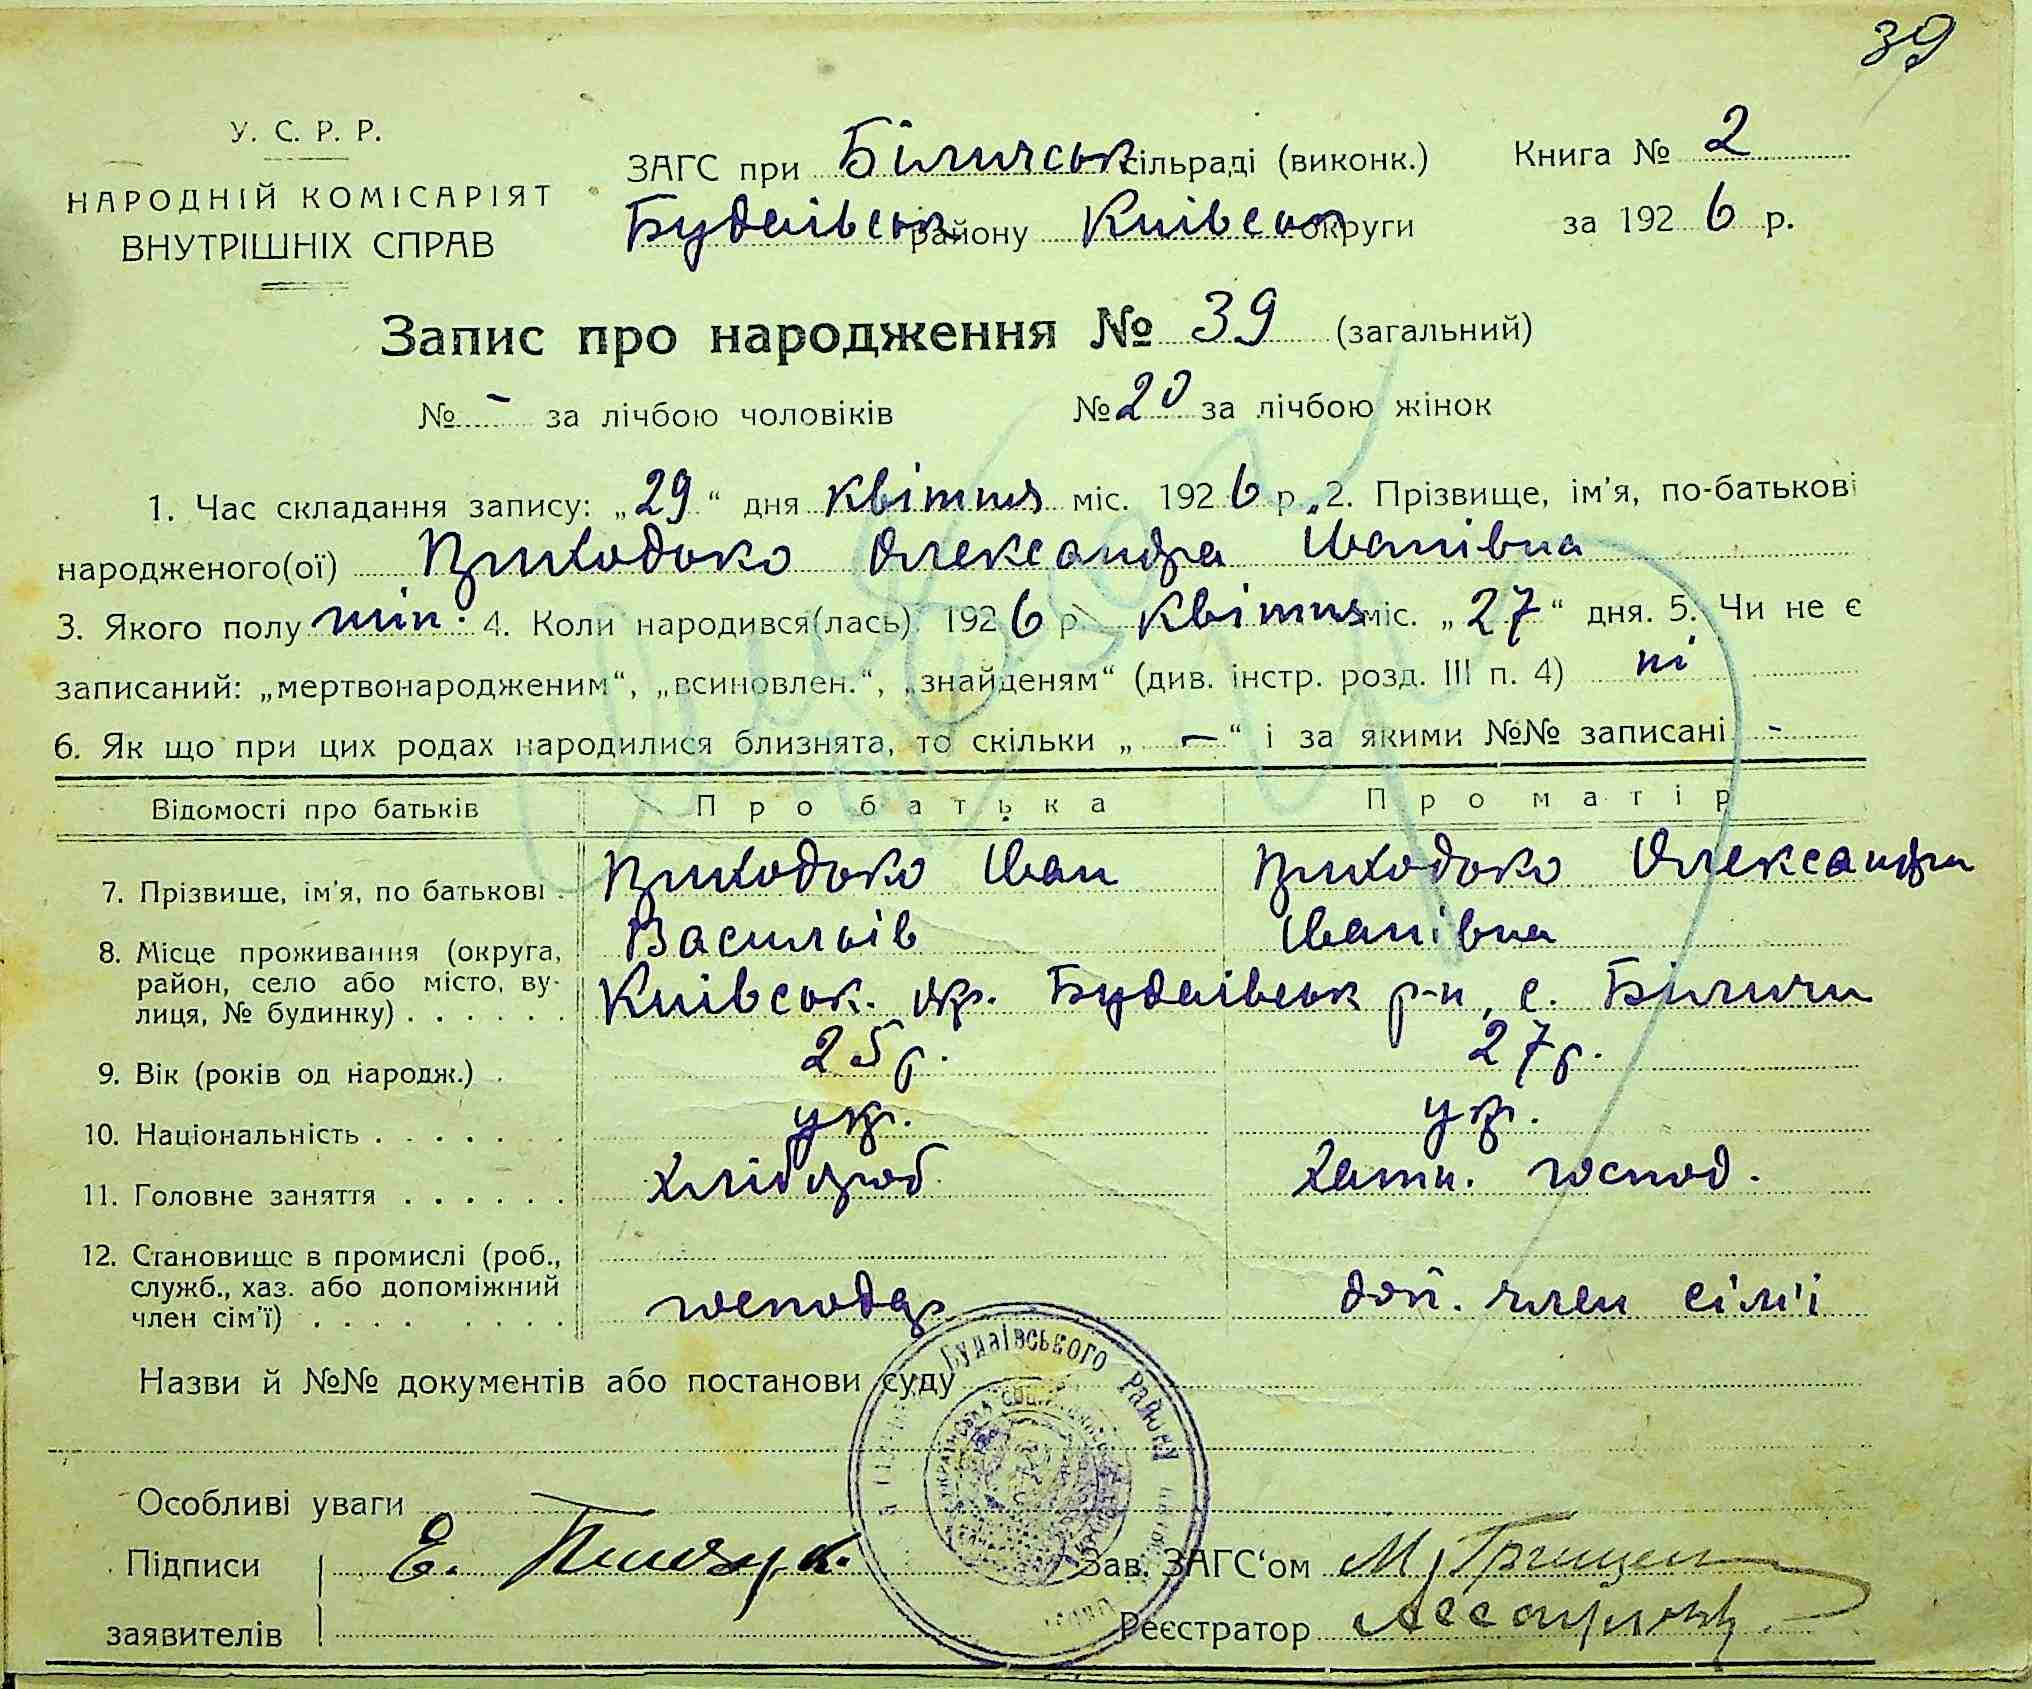 39
У. С. Р. Р.
НАРОДНІЙ КОМІСАРІЯТ
ВНУТРІШНІХ СПРАВ
ЗАГС при Біличськ сільраді (виконк.) Книга № 2
Будаівськ району Київськ округи за 1926 р.
Запис про народження № 39 (загальний)
№ - за лічбою чоловіків № 20 за лічбою жінок
1. Час складання запису: „29“ дня квітня міс. 1926 р. 2. Прізвище, ім'я, по-батькові
народженого(ої) Приходько Олександра Іванівна
3. Якого полу жін. 4. Коли народився(лась) 1926 р. квітня міс. „27“ дня. 5. Чи не є
записаний: „мертвонародженим“, „всиновлен.“, „знайденям“ (див. інстр. розд. III п. 4) ні
6. Як що при цих родах народилися близнята, то скільки „ — “ і за якими №№ записані -
Відомості про батьків Про батька Про матір
7. Прізвище, ім'я, по батькові . Приходько Іван Приходько Олександра
Васильів Іванівна
8. Місце проживання (округа, район, село або місто, вулиця, № будинку) . . . . . . Київськ. окр. Будаівськ р-н, с. Біличи
9. Вік (років од народж.) . 25 р. 27 р.
10. Національність . . . . . . укр. укр.
11. Головне заняття . . . . . . хлібороб. хатн. господ.
12. Становище в промислі (роб., служб., хаз. або допоміжний член сім'ї) . . . . . . . . господар доп. член сім'і
Назви й №№ документів або постанови суду
Будаівського району
Особливі уваги
Підписи Е. Зав. ЗАГС‘ом М. Грищен
заявителів Реєстратор